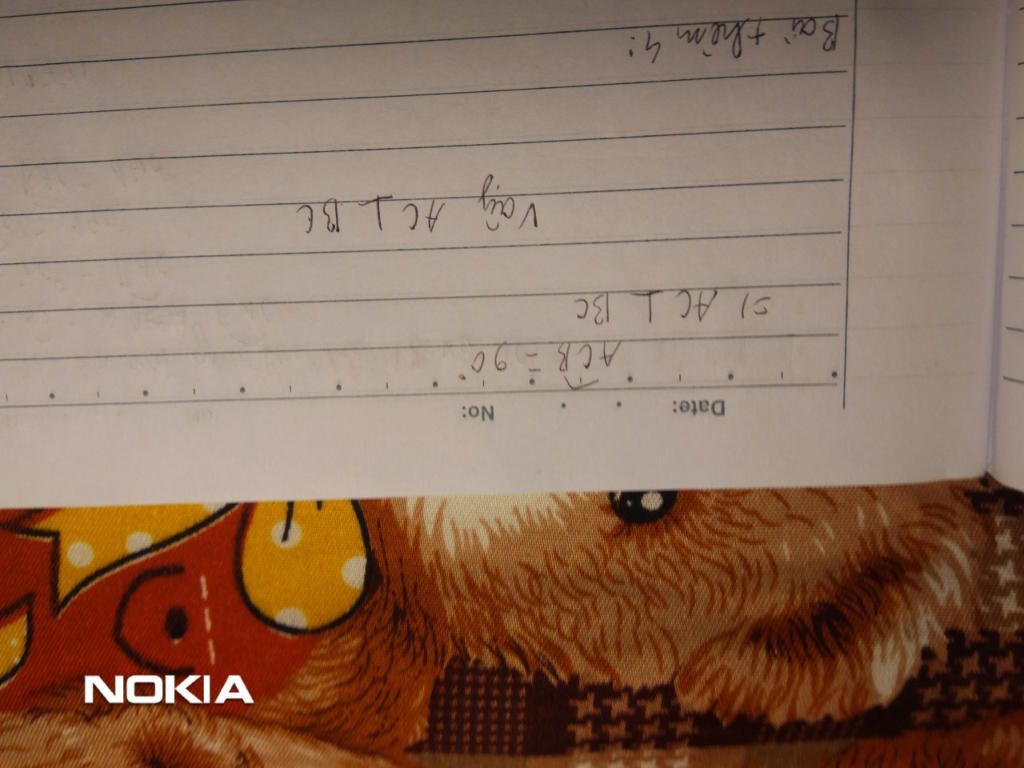 Date: No:
ACB = 90°
=) AC ⊥ BC
Vậy AC ⊥ BC
Bài thêm 4:
NOKIA